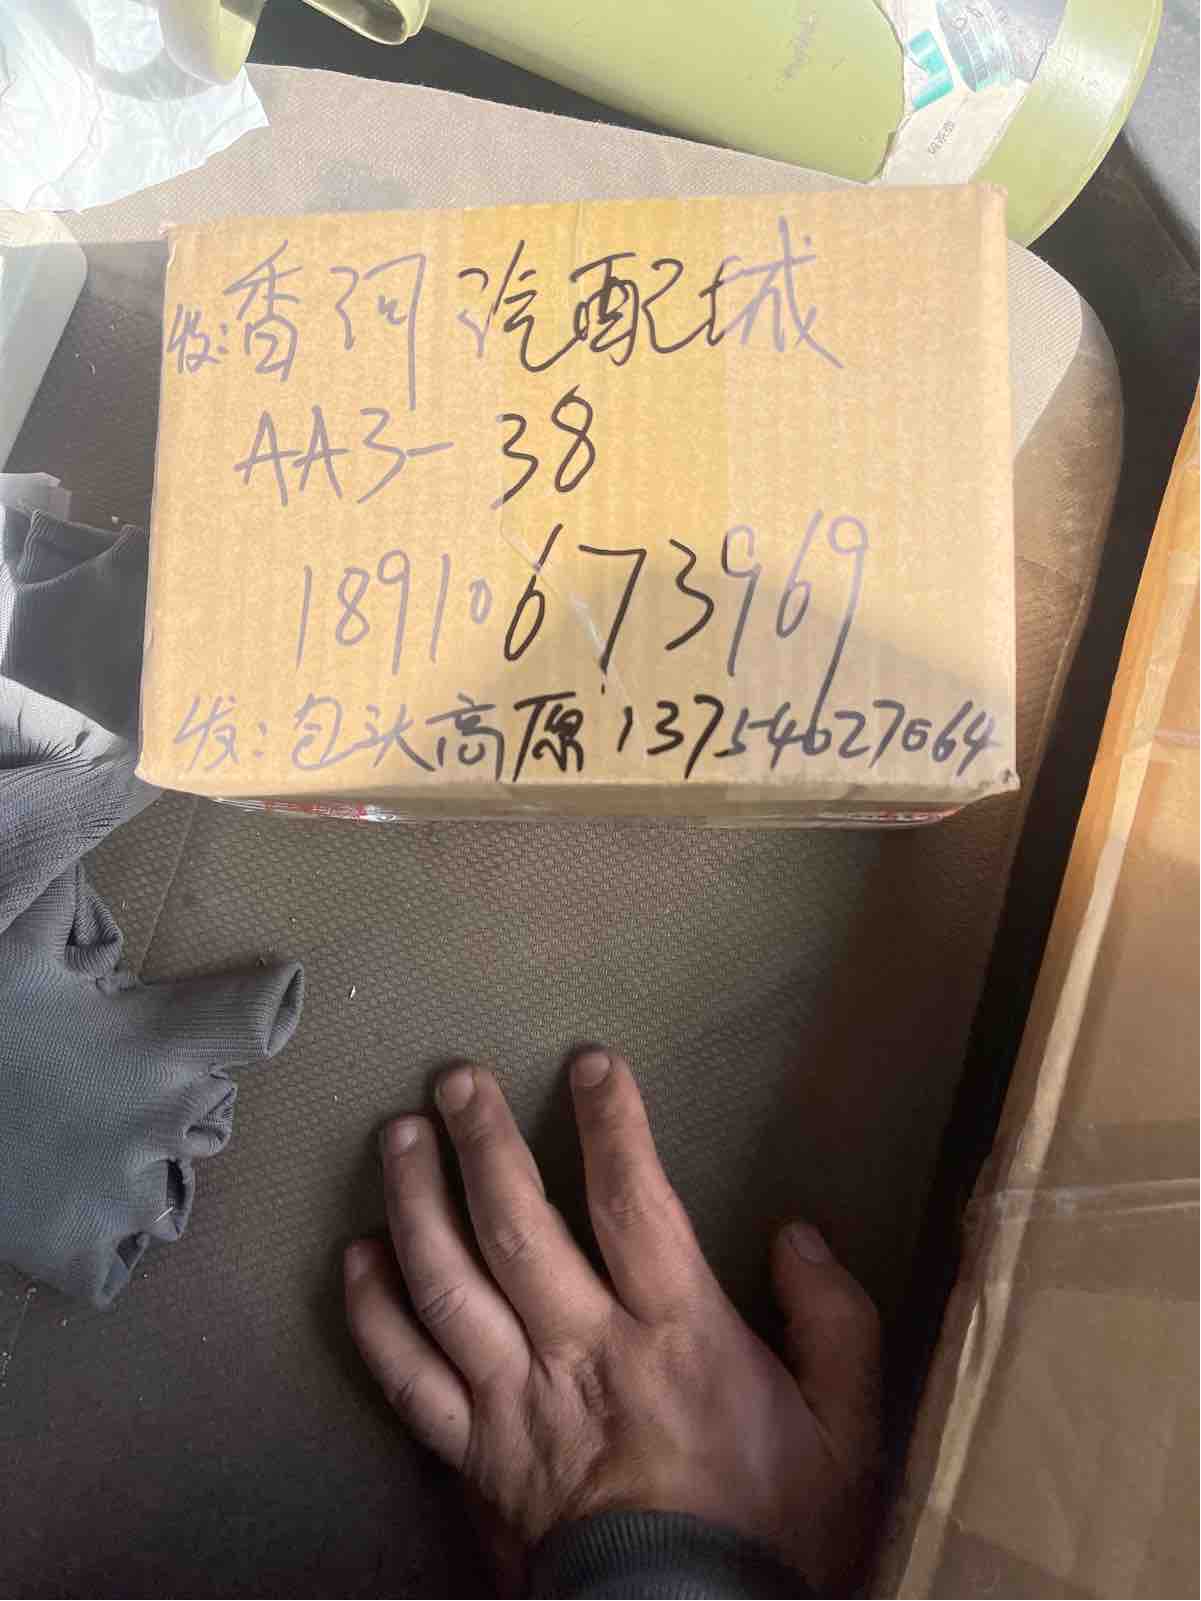 收:香河汽配城
AA3-38
18910673969
发:包头高原13754627064